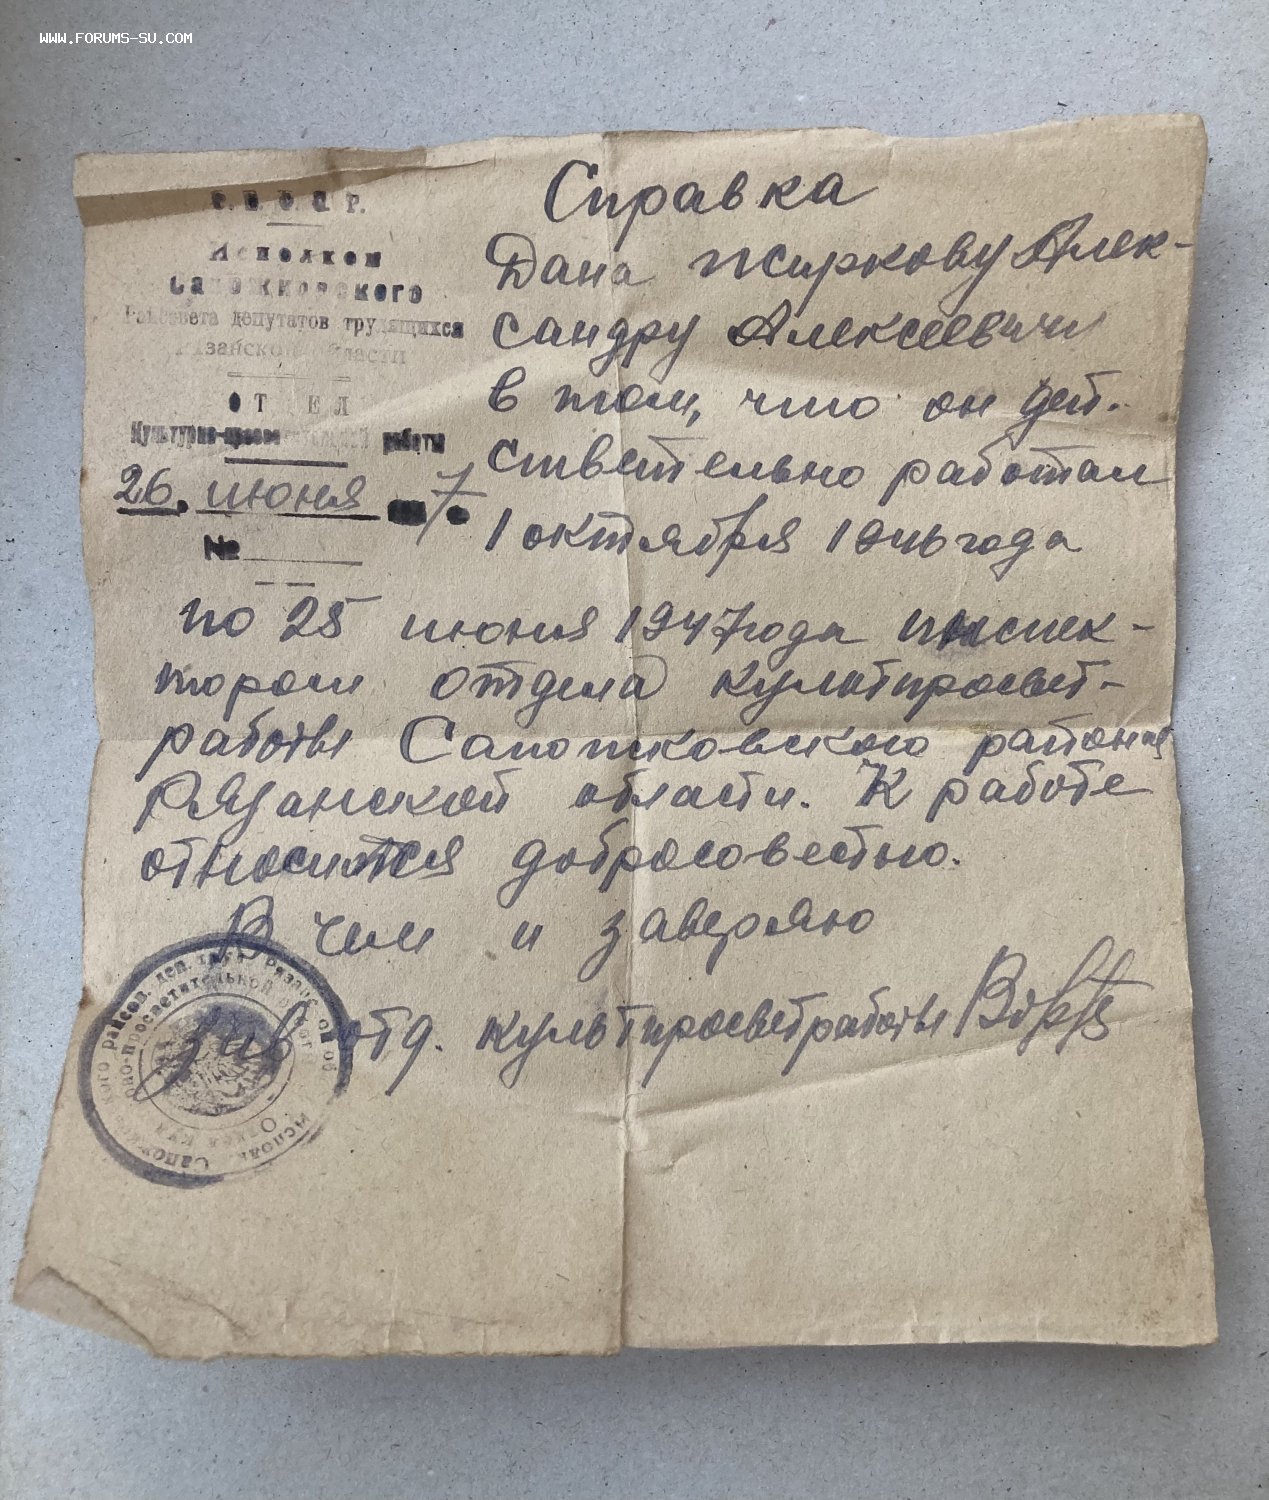 WWW.FORUMS-SU.COM
Р.С.Ф.С.Р.
Исполком
Сапожковского
Райсовета депутатов трудящихся
Рязанской области
ОТДЕЛ
Культурно-просветительной работы
26. июня 7
№
Справка
Дана Жиркову Алек-
сандру Алексеевичу
в том, что он дей-
ствительно работал
1 октября 1946 года
по 25 июня 1947 года инспек-
тором отдела культпросвет-
работы Сапожковского района
Рязанской области. К работе
относится добросовестно.
В чем и заверяю
Зав отд. культпросветработы